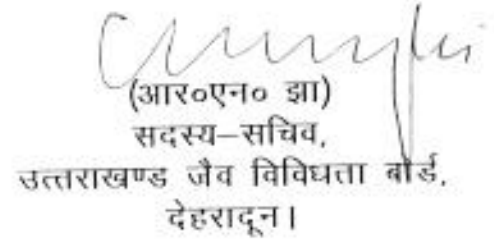 (आर०एन० झा)
सदस्य–सचिव,
उत्तराखण्ड जैव विविधता बोर्ड,
देहरादून।